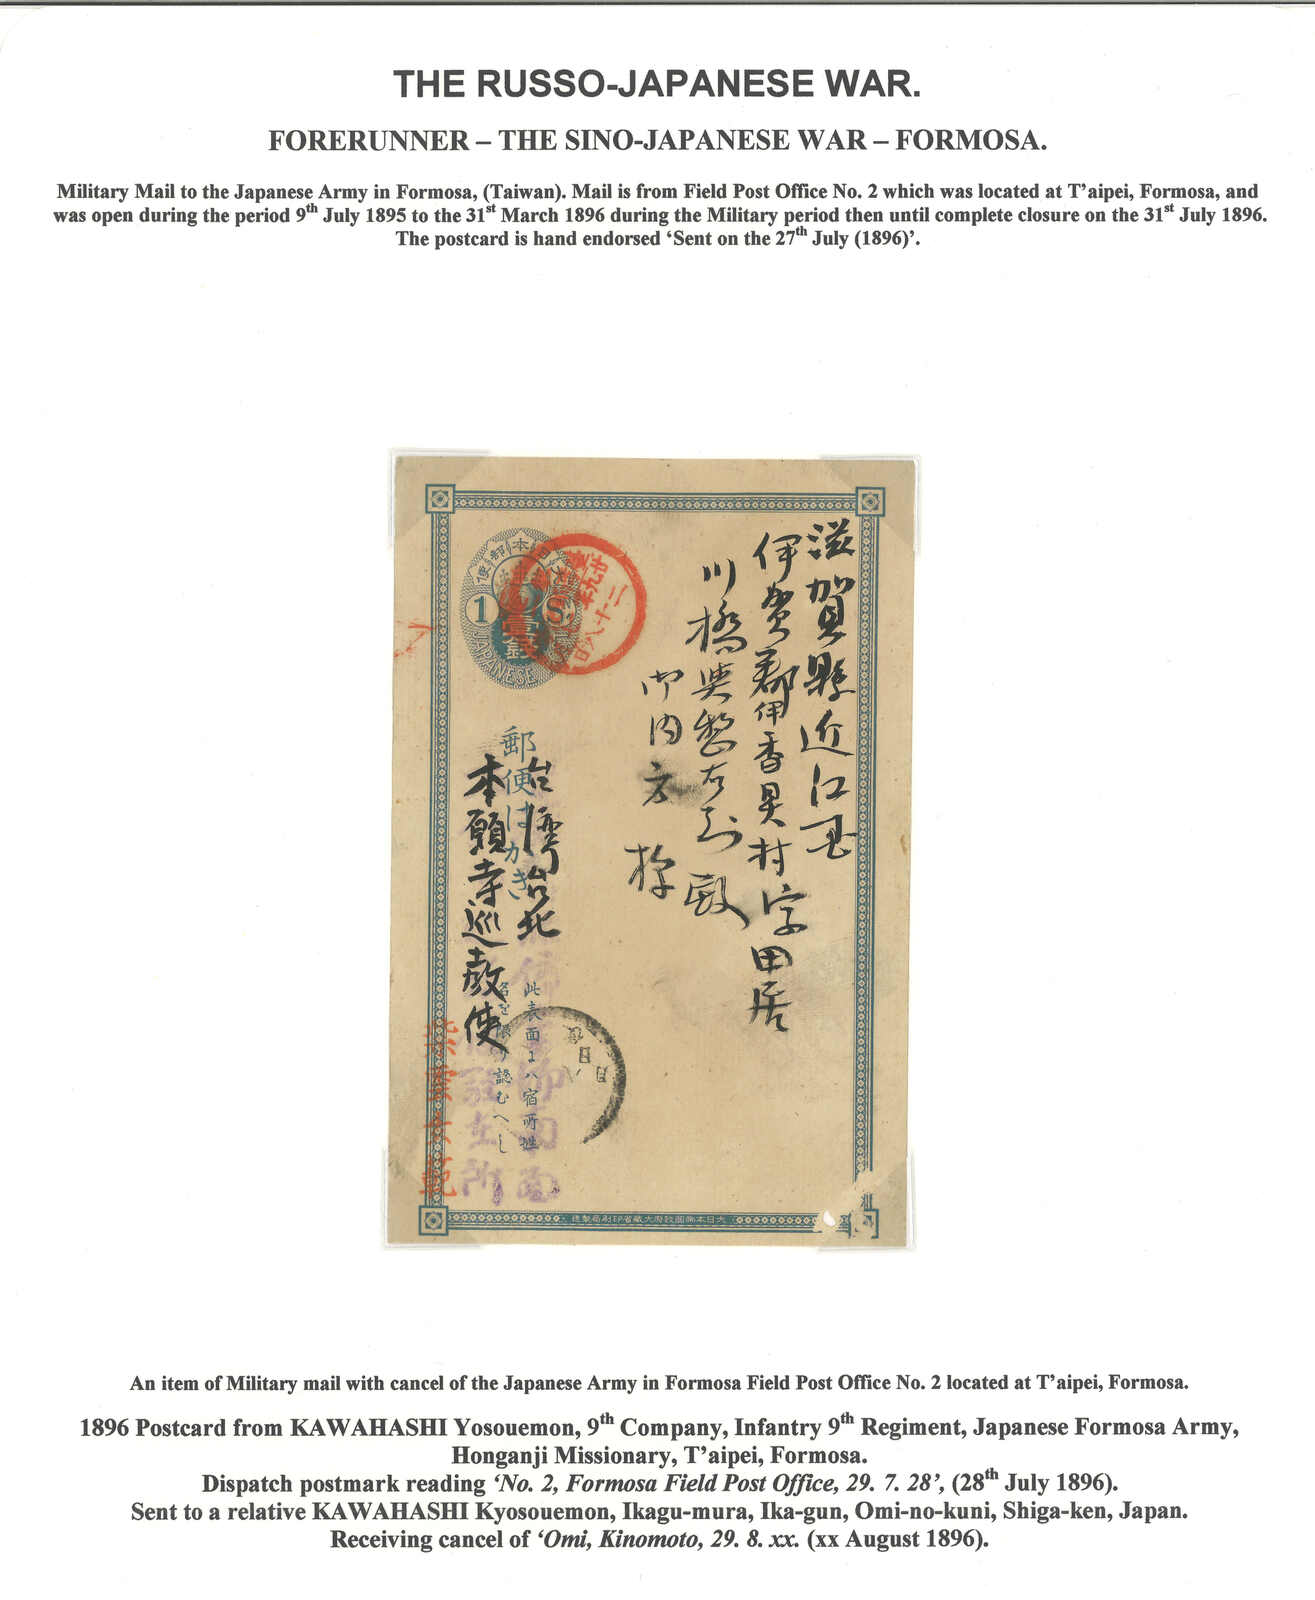 THE RUSSO-JAPANESE WAR.
FORERUNNER – THE SINO-JAPANESE WAR – FORMOSA.
Military Mail to the Japanese Army in Formosa, (Taiwan). Mail is from Field Post Office No. 2 which was located at T’aipei, Formosa, and
was open during the period 9th July 1895 to the 31st March 1896 during the Military period then until complete closure on the 31st July 1896.
The postcard is hand endorsed ‘Sent on the 27th July (1896)’.
滋賀縣近江国
伊香郡伊香具村字田居
川橋與惣右衛門殿
御内方様
二十八日
1 S.
壹錢
JAPANESE
郵便はかき
台湾台北
本願寺巡教使
此表面にハ宿所姓
名を限り認むへし
駐在所
大日本帝國政府大藏省印刷局製造
An item of Military mail with cancel of the Japanese Army in Formosa Field Post Office No. 2 located at T’aipei, Formosa.
1896 Postcard from KAWAHASHI Yosouemon, 9th Company, Infantry 9th Regiment, Japanese Formosa Army,
Honganji Missionary, T’aipei, Formosa.
Dispatch postmark reading ‘No. 2, Formosa Field Post Office, 29. 7. 28’, (28th July 1896).
Sent to a relative KAWAHASHI Kyosouemon, Ikagu-mura, Ika-gun, Omi-no-kuni, Shiga-ken, Japan.
Receiving cancel of ‘Omi, Kinomoto, 29. 8. xx. (xx August 1896).